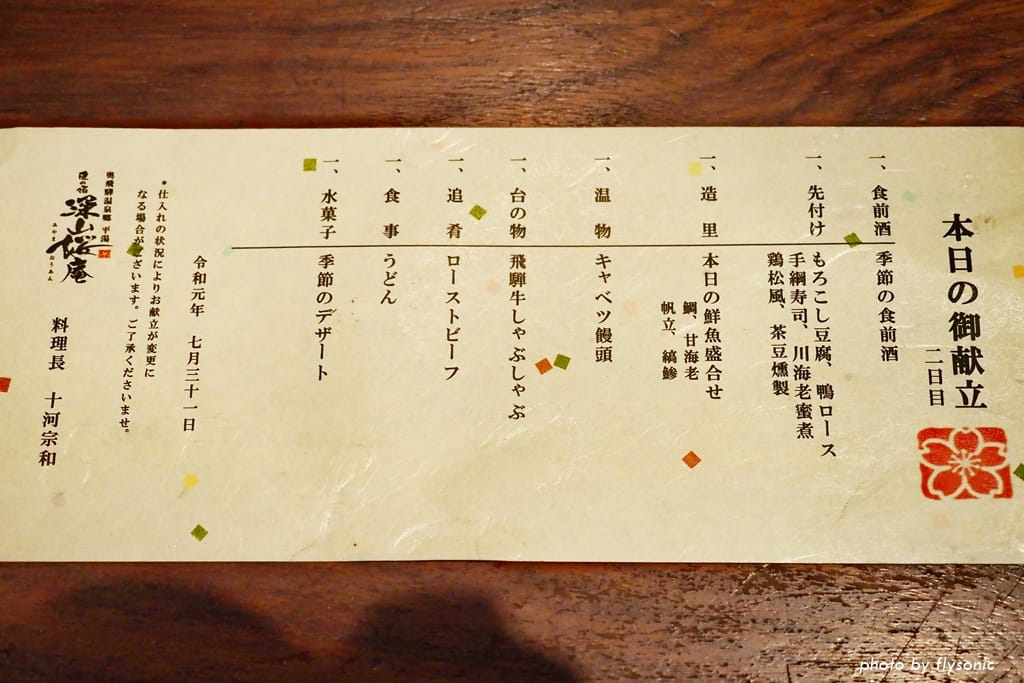 本日の御献立
二日目
一、食前酒 季節の食前酒
一、先付け もろこし豆腐、鴨ロース
手綱寿司、川海老蜜煮
鶏松風、茶豆燻製
一、造里 本日の鮮魚盛合せ
鯛、甘海老
帆立、縞鯵
一、温物 キャベツ饅頭
一、台の物 飛騨牛しゃぶしゃぶ
一、追肴 ローストビーフ
一、食事 うどん
一、水菓子 季節のデザート
令和元年 七月三十一日
*仕入れの状況によりお献立が変更に
なる場合がございます。ご了承くださいませ。
奥飛騨温泉郷 平湯
匠の宿
深山桜庵
みやま おうあん
料理長 十河宗和
photo by flysonic